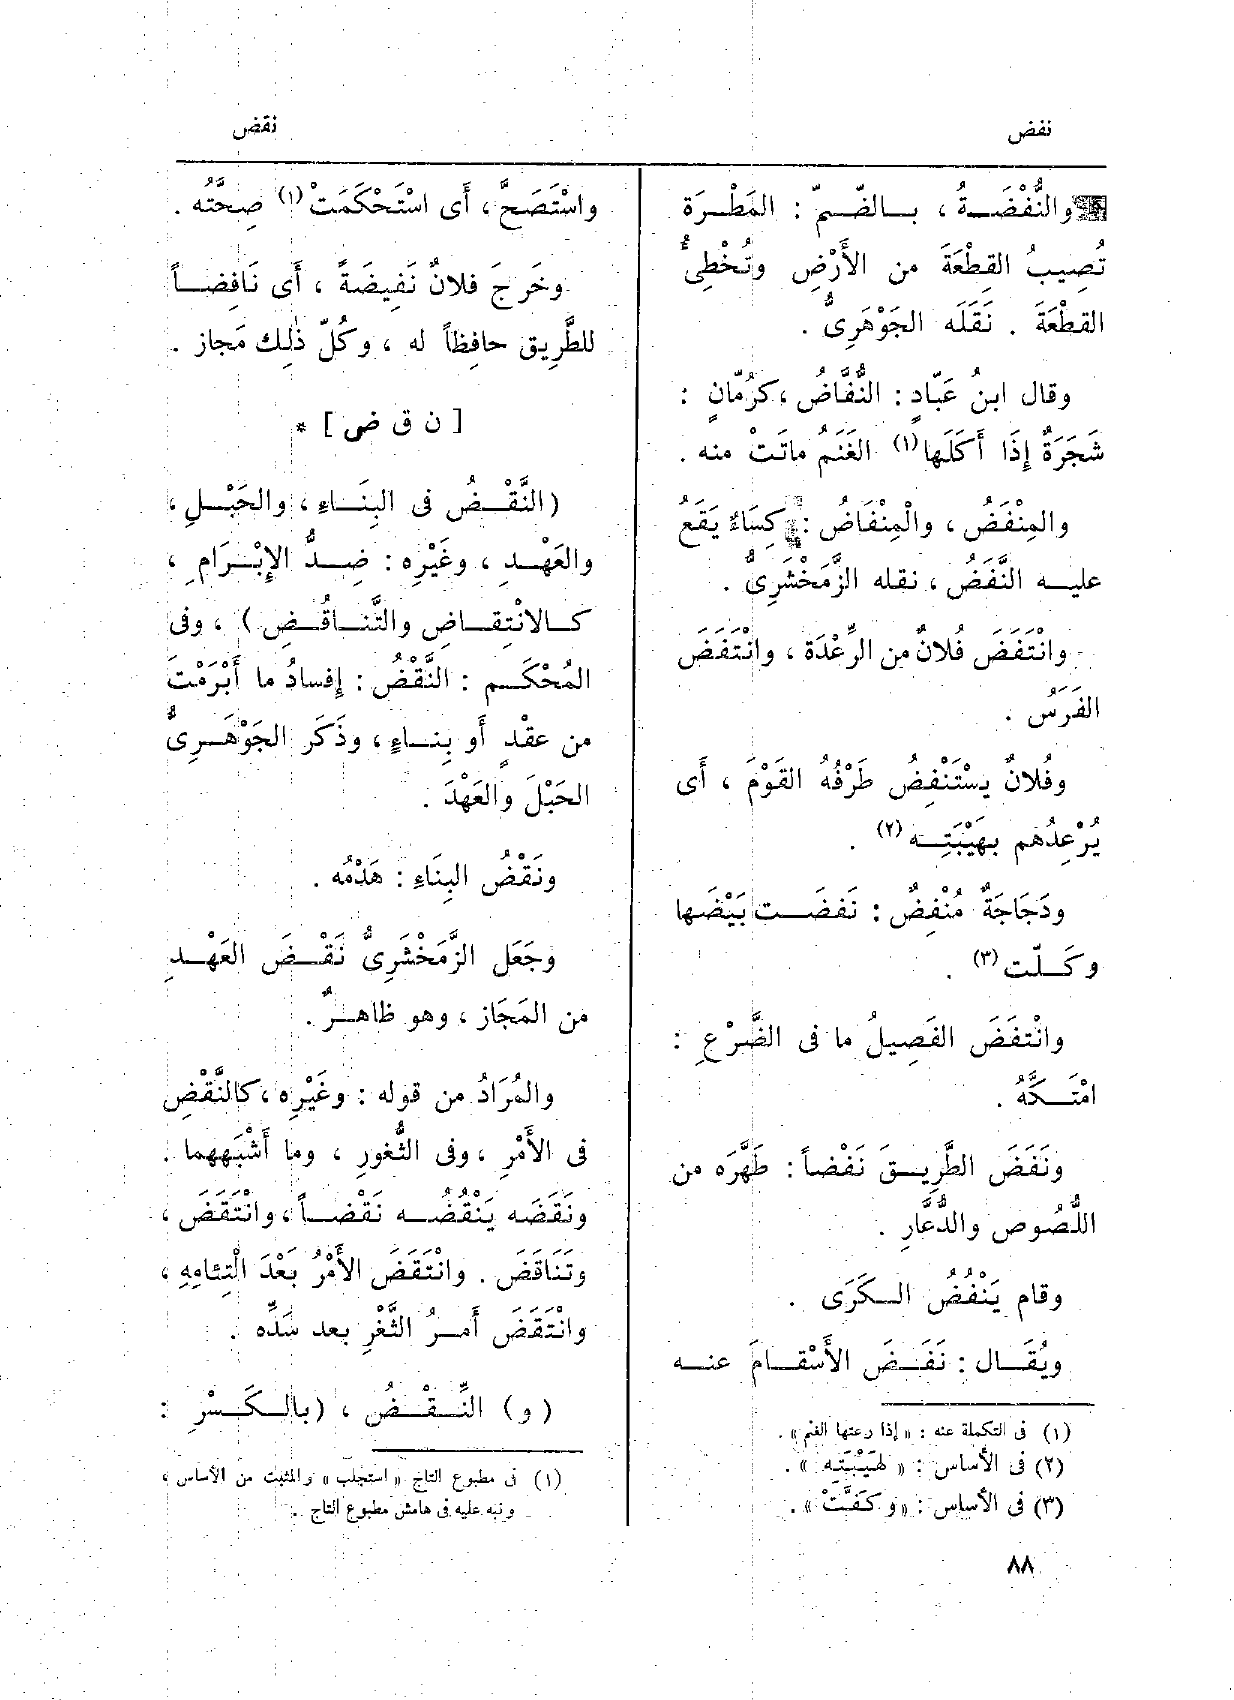 نفض
نقض
والنُّفْضَةُ ، بالضّمّ : المَطْرَة
تُصِيبُ القِطْعَةَ من الأَرْضِ وتُخْطِئُ
القطْعَةَ . نَقَلَه الجَوْهَرِىُّ .
وقال ابنُ عَبّادٍ : النُّفَّاضُ ، كرُمّانٍ :
شَجَرَةٌ إِذَا أَكَلَها (١) الغَنَمُ ماتَتْ منه .
والمِنْفَضُ ، والْمِنْفَاضُ : كِسَاءٌ يَقَعُ
عليه النَّفَضُ ، نقله الزَّمَخْشَرِىُّ .
وانْتَفَضَ فُلانٌ من الرِّعْدَة ، وانْتَفَضَ
الفَرَسُ .
وفُلانٌ يسْتَنْفِضُ طَرْفُهُ القَوْمَ ، أَى
يُرْعِدُهم بهَيْبَتِه (٢) .
ودَجَاجَةٌ مُنْفِضٌ : نَفَضَت بَيْضَها
وكَلّت (٣) .
وانْتفَضَ الفَصِيلُ ما فى الضَّرْعِ :
امْتَكَّهُ .
ونَفَضَ الطَّرِيقَ نَفْضاً : طَهَّرَه من
اللُّصُوص والدُّعَّارِ .
وقام يَنْفُضُ الكَرَى .
ويُقَال : نَفَضَ الأَسْقامَ عنه
(١) فى التكملة عنه : « إذا رعتها الغنم » .
(٢) فى الأساس : « لهَيْبَتِه » .
(٣) فى الأساس : « وكَفَّتْ » .
واسْتَصَحَّ ، أَى اسْتَحْكَمَتْ (١) صِحَّتُه .
وخَرَجَ فلانٌ نَفِيضَةً ، أَى نَافِضاً
للطَّرِيق حافِظاً له ، وكُلّ ذٰلِك مَجاز .
[ ن ق ض ] *
(النَّقْضُ فى البِنَاءِ ، والحَبْلِ ،
والعَهْدِ ، وغَيْرِه : ضِدُّ الإِبْرَامِ ،
كالانْتِقاضِ والتَّنَاقُضِ ) ، وفى
المُحْكَم : النَّقْضُ : إِفسادُ ما أَبْرَمْتَ
من عقْدٍ أَو بِناءٍ ، وذَكَر الجَوْهَرِىُّ
الحَبْلَ والعَهْدَ .
ونَقْضُ البِنَاءِ : هَدْمُه .
وجَعَل الزَّمَخْشَرِىُّ نَقْضَ العَهْدِ
من المَجَاز ، وهو ظاهرٌ .
والمُرَادُ من قوله : وغَيْرِه ، كالنَّقْضِ
فى الأَمْرِ ، وفى الثُّغورِ ، وما أَشْبَهَهما .
ونَقَضَه يَنْقُضُه نَقْضاً ، وانْتَقَضَ ،
وتَنَاقَضَ . وانْتَقَضَ الأَمْرُ بَعْدَ الْتِئامِهِ ،
وانْتَقَضَ أَمرُ الثَّغْرِ بعد سَدِّه .
( و ) النِّقْضُ ، ( بالكَسْرِ :
(١) فى مطبوع التاج « استجلب » والمثبت من الأساس ،
ونبه عليه فى هامش مطبوع التاج .
٨٨